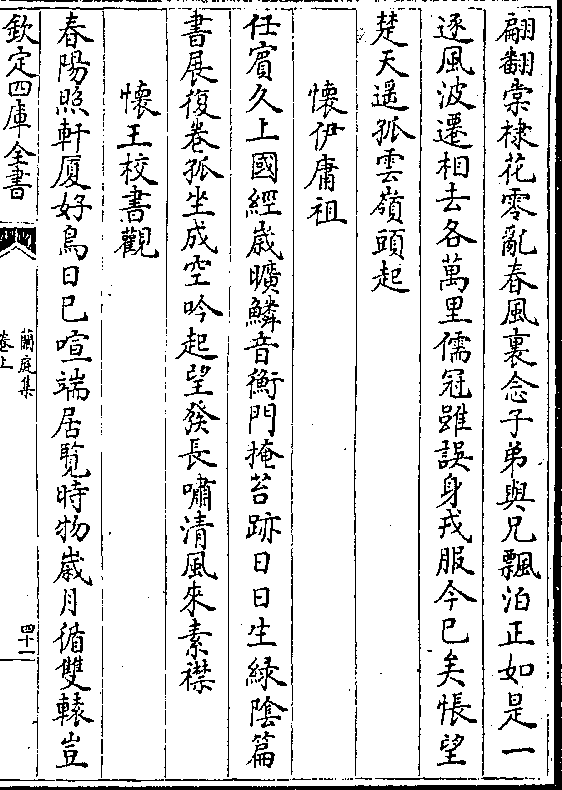 翩翻棠棣花零亂春風裏念子弟與兄飄泊正如是一
逐風波遷相去各萬里儒冠雖誤身戎服今已矣悵望
楚天遥孤雲嶺頭起
懷伊庸祖
任賔久上國經歲曠鱗音衡門掩苔跡日日生緑陰篇
書展復卷孤坐成空吟起望發長嘯清風來素襟
懷王校書觀
春陽照軒厦好鳥日已喧端居覽時物歲月循雙轅豈
欽定四庫全書
蘭庭集
卷上
四十一